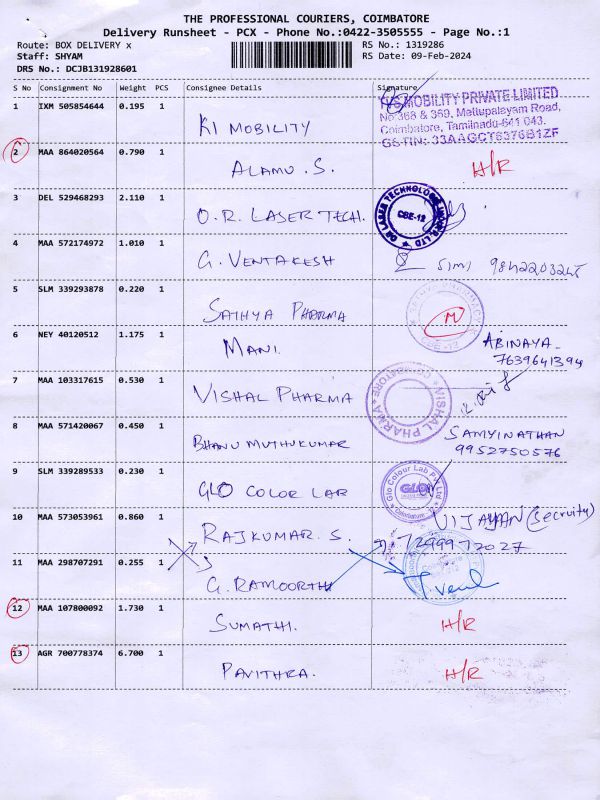 THE PROFESSIONAL COURIERS, COIMBATORE
Delivery Runsheet - PCX - Phone No.:0422-3505555 - Page No.:1
Route: BOX DELIVERY x RS No.: 1319286
Staff: SHYAM RS Date: 09-Feb-2024
DRS No.: DCJB131928601
S No Consignment No Weight PCS Consignee Details Signature
1 IXM 505854644 0.195 1 KI MOBILITY
MOBILITY PRIVATE LIMITED
No 368 & 369, Mettupalayam Road,
Coimbatore, Tamilnadu-641 043.
GSTIN: 33AAGCT6376B1ZF
2 MAA 864020564 0.790 1 ALAMU . S. H/R
3 DEL 529468293 2.110 1 O.R. LASER TECH. CBE-12
4 MAA 572174972 1.010 1 G. VENTAKESH SIMI
5 SLM 339293878 0.220 1 SATHYA PHARMA
6 NEY 40120512 1.175 1 MANI. ABINAYA
7639641394
7 MAA 103317615 0.530 1 VISHAL PHARMA VISHAL PHARMA COIMBATORE
8 MAA 571420067 0.450 1 BHANU MUTHUKUMAR SAMYINATHAN
9952750576
9 SLM 339289533 0.230 1 GLO COLOR LAB Glo Colour Lab Pvt Ltd GLO
10 MAA 573053961 0.860 1 RAJKUMAR. S. VIJAYAN (Secruity)
7299972027
11 MAA 298707291 0.255 1 G. RAMOORTH
12 MAA 107800092 1.730 1 SUMATHI. H/R
13 AGR 700778374 6.700 1 PAVITHRA. H/R